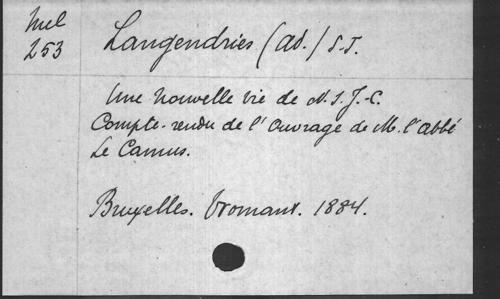 Mel
253
Langendries (Ad.) S.J.
Une nouvelle vie de N.S.J.-C.
Compte-rendu de l'ouvrage de M. l'abbé
Le Camus.
Bruxelles. Vromant. 1884.